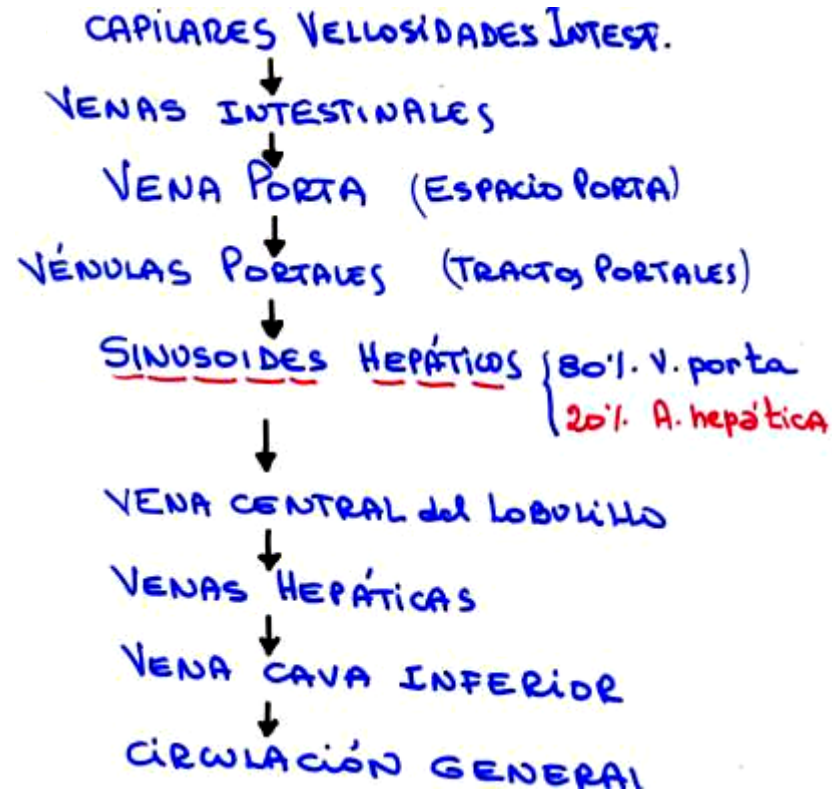 CAPILARES VELLOSIDADES INTEST.
VENAS INTESTINALES
VENA PORTA (ESPACIO PORTA)
VÉNULAS PORTALES (TRACTOS PORTALES)
SINUSOIDES HEPÁTICOS 80% V. porta
20% A. hepática
VENA CENTRAL del LOBULILLO
VENAS HEPÁTICAS
VENA CAVA INFERIOR
CIRCULACIÓN GENERAL